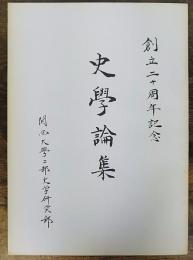 創立二十周年記念
史學論集
関西大學二部史学研究部